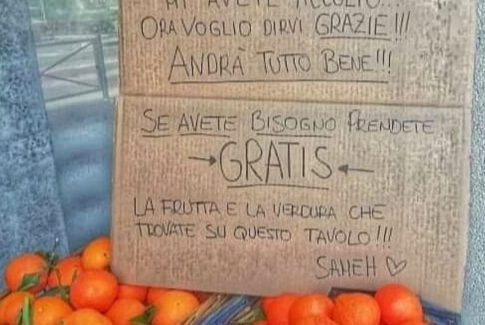 MI AVETE ACCOLTO...
ORA VOGLIO DIRVI GRAZIE!!!
ANDRÀ TUTTO BENE!!!
SE AVETE BISOGNO PRENDETE
→GRATIS←
LA FRUTTA E LA VERDURA CHE
TROVATE SU QUESTO TAVOLO!!!
SAMEH ♡